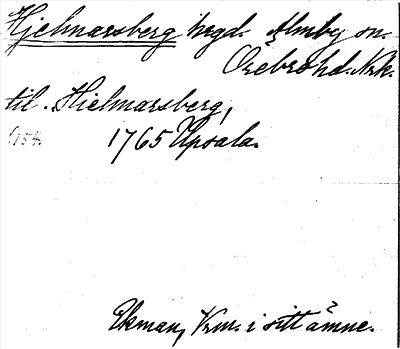 Hjelmarsberg hrgd. Almby sn.
Örebro hd. Nrk.
til. Hielmarsberg,
1765 Upsala.
Ekman, Vrm. i sitt ämne.